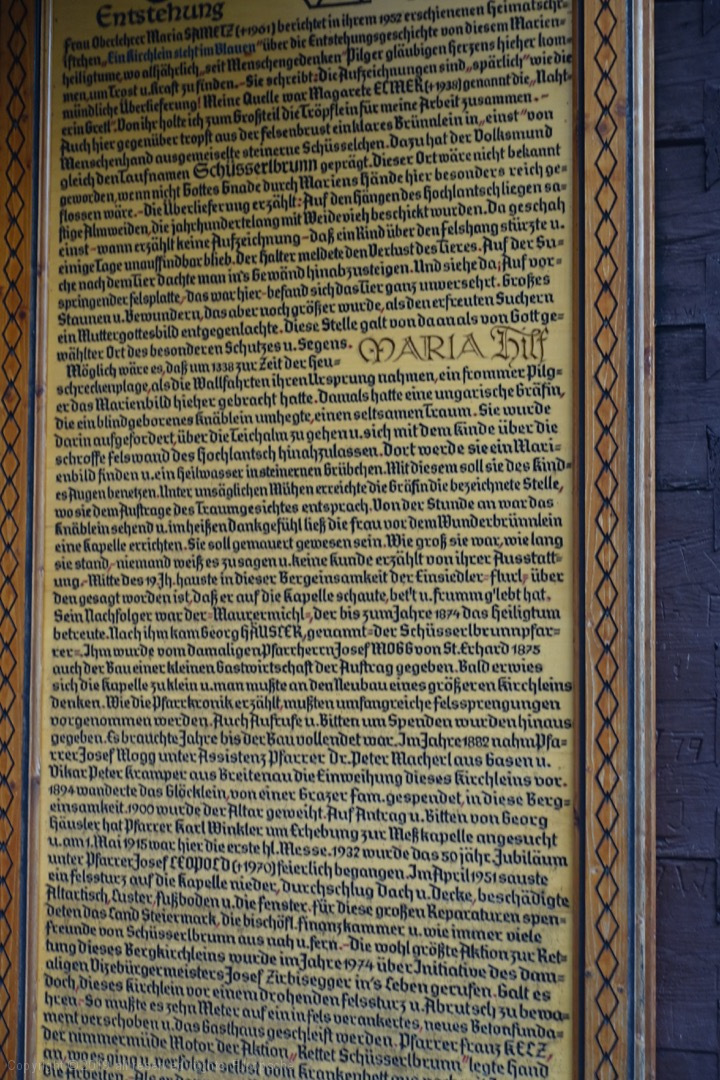 Entstehung
Frau Oberlehrer Maria SAMETZ (+1961) berichtet in ihrem 1952 erschienenen Heimatschr-
iftchen „Ein Kirchlein steht im Blauen" über die Entstehungsgeschichte von diesem Marien-
heiligtume, wo alljährlich „seit Menschengedenken" Pilger gläubigen Herzens hieher kom-
men, um Trost u. Kraft zu finden. - Sie schreibt: die Aufzeichnungen sind „spärlich" wie die
mündliche Überlieferung! Meine Quelle war Magarete ELMER (+1938) genannt die „Naht-
erin Gretl". Von ihr holte ich zum Großteil die Tröpflein für meine Arbeit zusammen. -
Auch hier gegenüber tropft aus der Felsenbrust ein klares Brünnlein in „einst" von
Menschenhand ausgemeiselte steinerne Schüsselchen. Dazu hat der Volksmund
gleich den Taufnamen Schüsserlbrunn geprägt. Dieser Ort wäre nicht bekannt
geworden, wenn nicht Gottes Gnade durch Mariens Hände hier besonders reich ge=
flossen wäre. - Die Überlieferung erzählt: Auf den Hängen des Hochlantsch liegen sa=
ftige Almweiden, die jahrhundertelang mit Weidevieh beschickt wurden. Da geschah
einst - wann erzählt keine Aufzeichnung - daß ein Rind über den Felshang stürzte u.
einige Tage unauffindbar blieb. Der Halter meldete den Verlust des Tieres. Auf der Su=
che nach dem Tier dachte man in's Gewänd hinabzusteigen. Und siehe da; Auf vor=
springender Felsplatte, - das war hier - befand sich das Tier ganz unversehrt. Großes
Staunen u. Bewundern, das aber noch größer wurde, als den erfreuten Suchern
ein Muttergottesbild entgegenlachte. Diese Stelle galt von da an als von Gott ge=
wählter Ort des besonderen Schutzes u. Segens. MARIA Hilf
Möglich wäre es, daß um 1338 zur Zeit der Heu=
schreckenplage, als die Wallfahrten ihren Ursprung nahmen, ein frommer Pilg=
er das Marienbild hieher gebracht hatte. Damals hatte eine ungarische Gräfin,
die ein blindgeborenes Knäblein umhegte, einen seltsamen Traum. Sie wurde
darin aufgefordert, über die Teichalm zu gehen u. sich mit dem Kinde über die
schroffe Felswand des Hochlantsch hinabzulassen. Dort werde sie ein Mari=
enbild finden u. ein Heilwasser in steinernen Grübchen. Mit diesem soll sie des Kind=
es Augen benetzen. Unter unsäglichen Mühen erreichte die Gräfin die bezeichnete Stelle,
wo sie dem Auftrage des Traumgesichtes entsprach. Von der Stunde an war das
Knäblein sehend u. im heißen Dankgefühl ließ die Frau vor dem Wunderbrünnlein
eine Kapelle errichten. Sie soll gemauert gewesen sein. Wie groß sie war, wie lang
sie stand, - niemand weiß es zu sagen u. keine Kunde erzählt von ihrer Ausstatt=
ung. - Mitte des 19. Jh. hauste in dieser Bergeinsamkeit der Einsiedler =Flurl, über
den gesagt worden ist, daß er auf die Kapelle schaute, bet't u. frumm g'lebt hat.
Sein Nachfolger war der =Maurermichl=, der bis zum Jahre 1874 das Heiligtum
betreute. Nach ihm kam Georg HÄUSLER, genannt =der Schüsserlbrunnpfar=
rer=. Ihm wurde vom damaligen Pfarrherrn Josef MOGG von St. Erhard 1875
auch der Bau einer kleinen Gastwirtschaft der Auftrag gegeben. Bald erwies
sich die Kapelle zu klein u. man mußte an den Neubau eines größeren Kirchleins
denken. Wie die Pfarrkronik erzählt, mußten umfangreiche Felssprengungen
vorgenommen werden. Auch Aufrufe u. Bitten um Spenden wurden hinaus
gegeben. Es brauchte Jahre bis der Bau vollendet war. Im Jahre 1882 nahm Pfa=
rrer Josef Mogg unter Assistenz Pfarrer Dr. Peter Macherl aus Gasen u.
Vikar Peter Kramper aus Breitenau die Einweihung dieses Kirchleins vor.
1894 wanderte das Glöcklein, von einer Grazer Fam. gespendet, in diese Berg=
einsamkeit. 1900 wurde der Altar geweiht. Auf Antrag u. Bitten von Georg
Häusler hat Pfarrer Karl Winkler um Erhebung zur Meßkapelle angesucht
u. am 1. Mai 1915 war hier die erste hl. Messe. 1932 wurde das 50 jähr. Jubiläum
unter Pfarrer Josef LEOPOLD (+1970) feierlich begangen. Im April 1951 sauste
ein Felssturz auf die Kapelle nieder, durchschlug Dach u. Decke, beschädigte
Altartisch, Luster, Fußboden u. die Fenster. Für diese großen Reparaturen spen=
deten das Land Steiermark, die bischöfl. Finanzkammer u. wie immer viele
Freunde von Schüsserlbrunn aus nah u. fern. - Die wohl größte Aktion zur Ret=
tung dieses Bergkirchleins wurde im Jahre 1974 über Initiative des dam=
aligen Vizebürgermeisters Josef Zirbisegger in's Leben gerufen. Galt es
doch, dieses Kirchlein vor einem drohenden Felssturz u. Abrutsch zu bewa=
hren. - So mußte es zehn Meter auf ein in Fels verankertes, neues Betonfunda=
ment verschoben u. das Gasthaus geschleift werden. Pfarrer Franz KELZ,
der nimmermüde Motor der Aktion „Rettet Schüsserlbrunn" legte Hand
an, wo es ging u. verfolgte selbst vom Krankenbett aus
die Arbeiten.